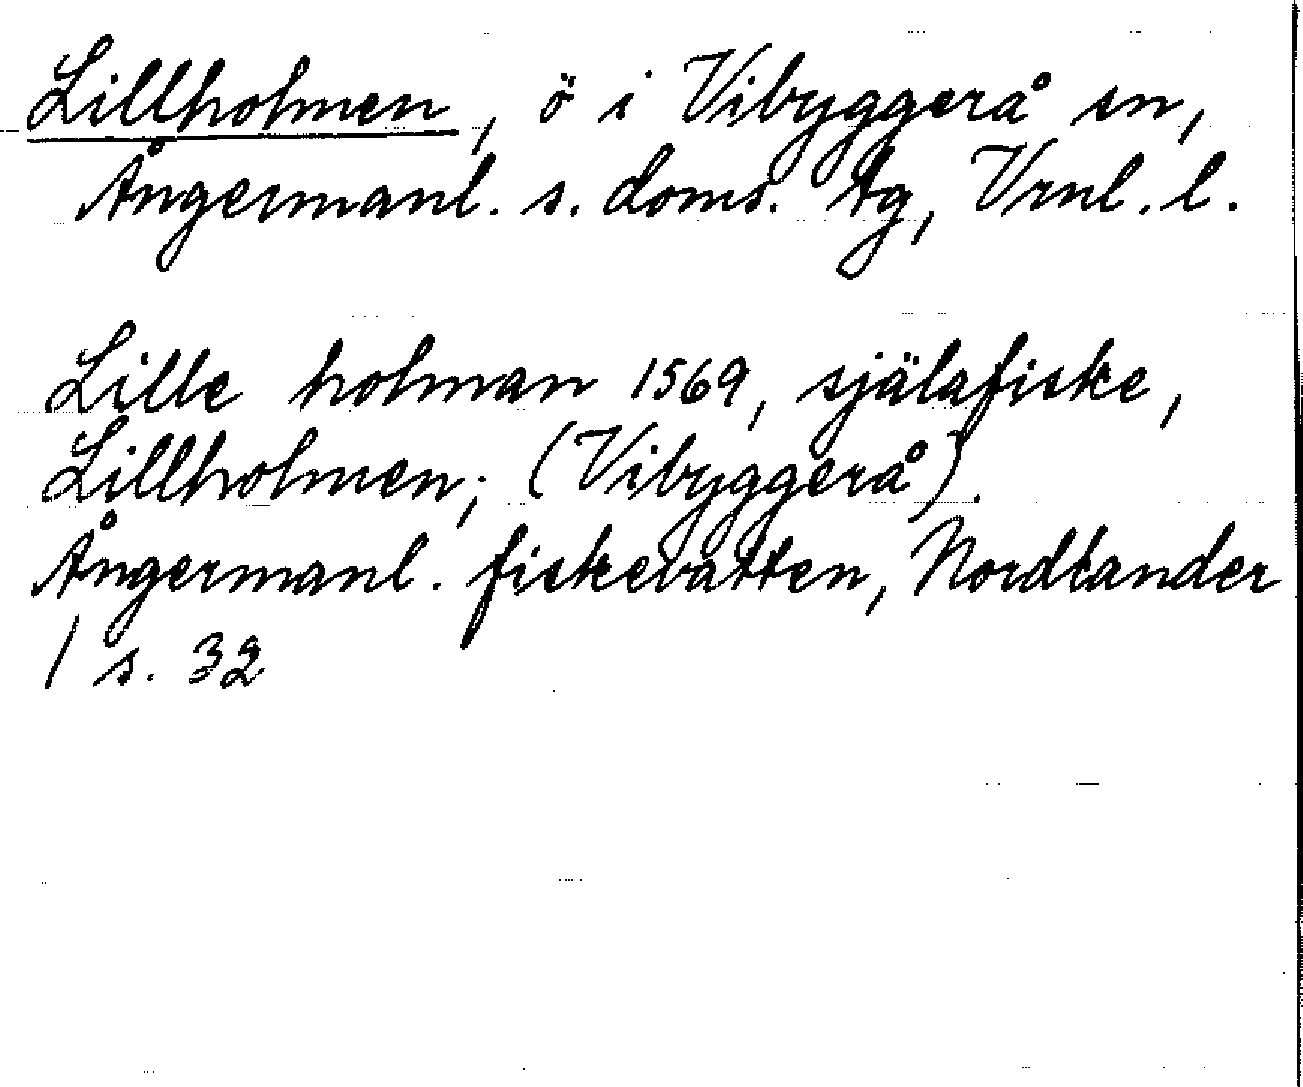 Lillholmen, ö i Vibyggerå sn,
Ångermanl. s. doms. tg, Vrnl. l.
Lille holman 1569, själafiske,
Lillholmen; (Vibyggerå).
Ångermanl. fiskevatten, Nordlander
/ s. 32